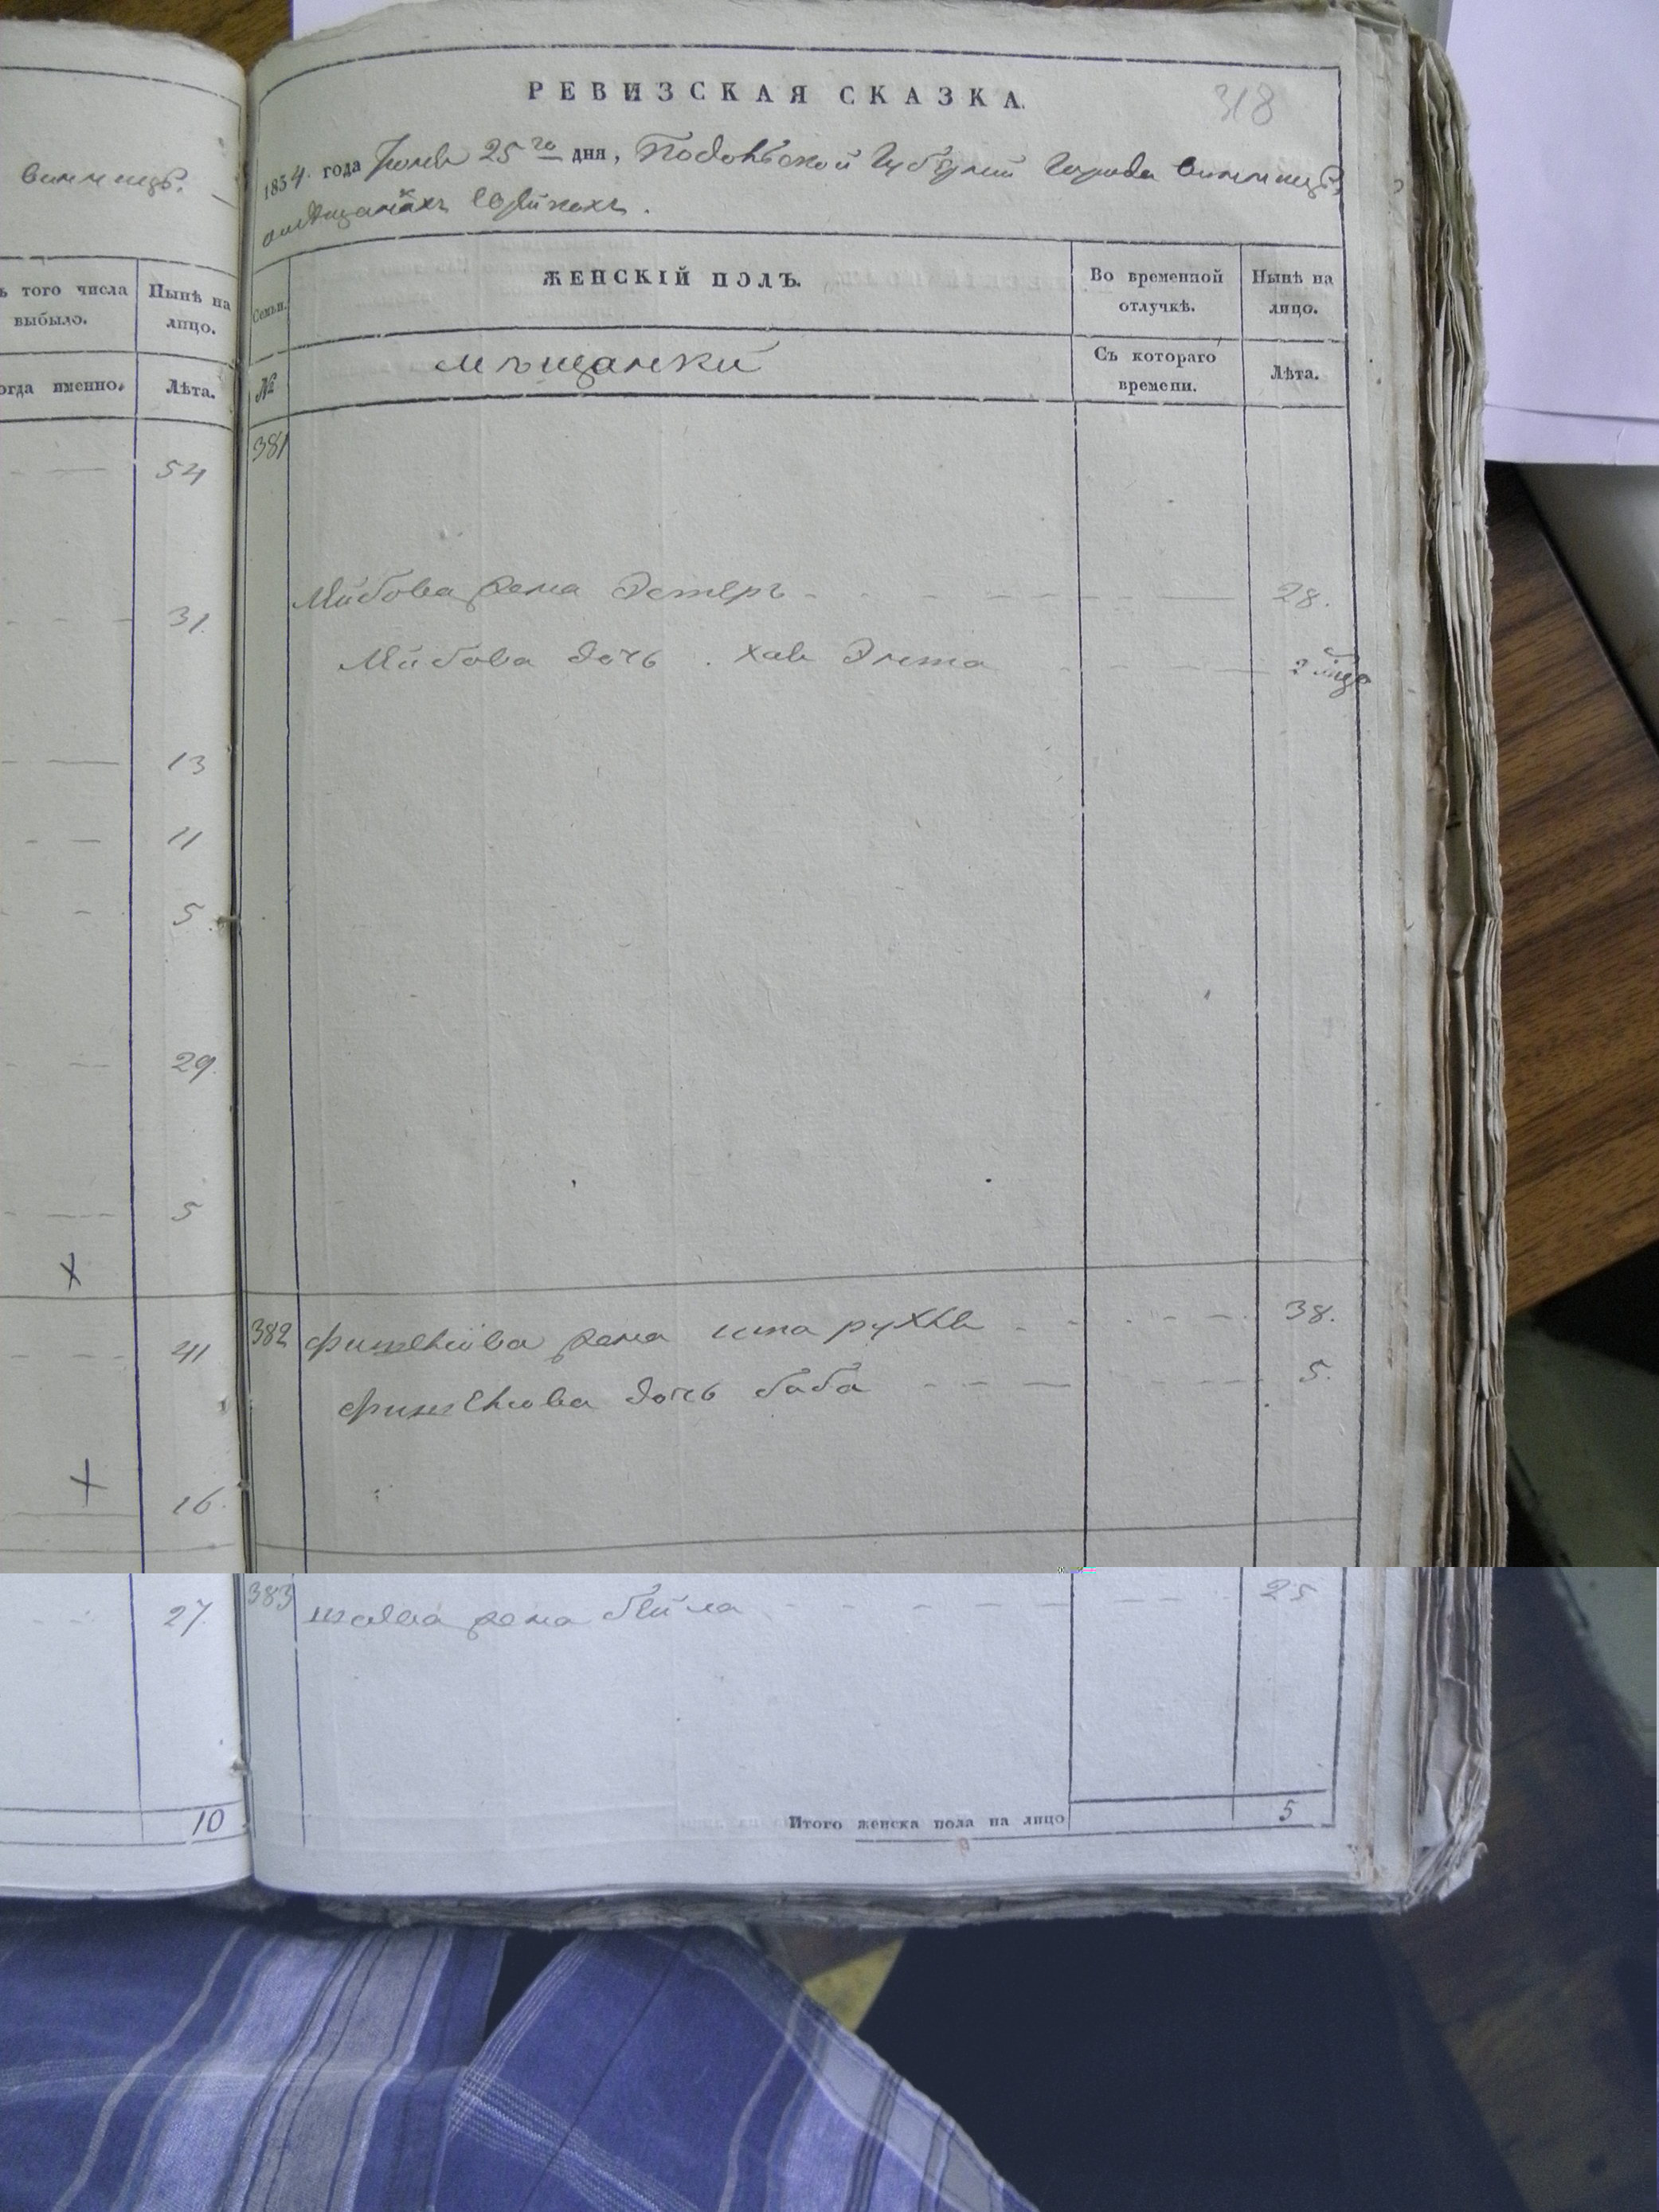 Винницѣ.
ъ того числа
выбыло.
Нынѣ на
лицо.
огда именно.
Лѣта.
54
31.
13
11
5
29.
5
41
16.
27.
10
318
РЕВИЗСКАЯ СКАЗКА.
1854 года Июня 25го дня, Подольской Губерніи Города Винницѣ,
о мѣщанахъ Евреяхъ.
Семьи.
ЖЕНСКІЙ ПОЛЪ.
Во временной
отлучкѣ.
Нынѣ на
лицо.
№
мѣщанки
Съ котораго
времени.
Лѣта.
381
Лейбова жена Эстеръ 28.
Лейбова дочь Хая 2
382 Фишелiова жена Рухля 38.
Фишелiова дочь Баба 5.
383 жена Бейла 25
Итого женска пола на лицо 5